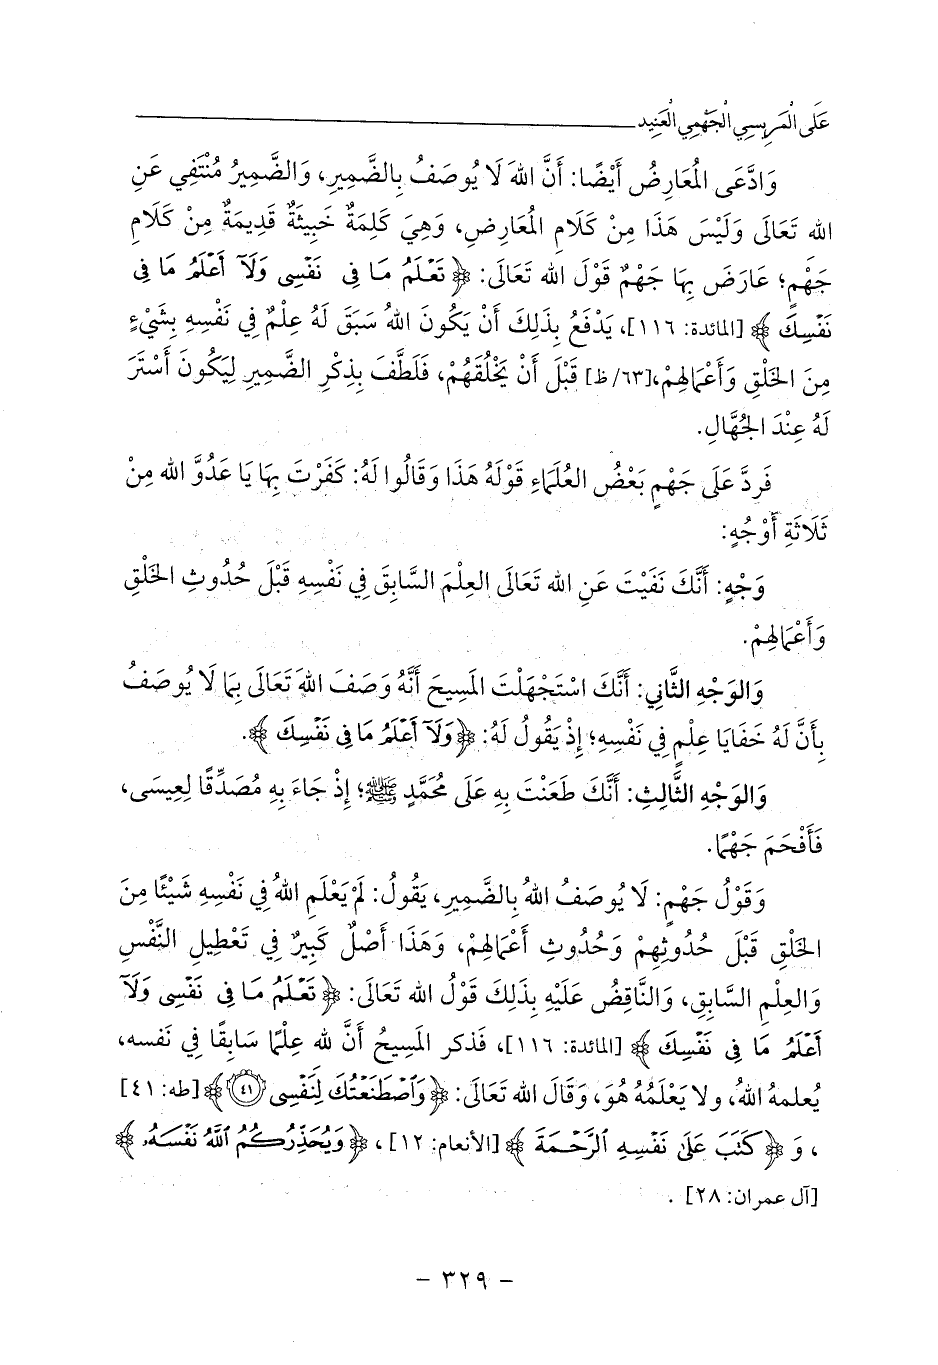 عَلَى الْمَرِيسِي الْجَهْمِي الْعَنِيد
وَادَّعَى المُعَارِضُ أَيْضًا: أَنَّ اللهَ لَا يُوصَفُ بِالضَّمِيرِ، وَالضَّمِيرُ مُنْتَفِي عَنِ
الله تَعَالَى وَلَيْسَ هَذَا مِنْ كَلَامِ المُعَارِضِ، وَهِيَ كَلِمَةٌ خَبِيثَةٌ قَدِيمَةٌ مِنْ كَلَامِ
جَهْمٍ؛ عَارَضَ بِهَا جَهْمٌ قَوْلَ الله تَعَالَى: ﴿تَعْلَمُ مَا فِي نَفْسِي وَلَآ أَعْلَمُ مَا فِي
نَفْسِكَ﴾ [المائدة: ١١٦]، يَدْفَعُ بِذَلِكَ أَنْ يَكُونَ اللهُ سَبَقَ لَهُ عِلْمٌ فِي نَفْسِهِ بِشَيْءٍ
مِنَ الخَلْقِ وَأَعْمَالِهِمْ،[٦٣/ظ] قَبْلَ أَنْ يَخْلُقَهُمْ، فَلَطَّفَ بِذِكْرِ الضَّمِيرِ لِيَكُونَ أَسْتَرَ
لَهُ عِنْدَ الجُهَّالِ.
فَرَدَّ عَلَى جَهْمٍ بَعْضُ العُلَمَاءِ قَوْلَهُ هَذَا وَقَالُوا لَهُ: كَفَرْتَ بِهَا يَا عَدُوَّ الله مِنْ
ثَلَاثَةِ أَوْجُهٍ:
وَجْهٍ: أَنَّكَ نَفَيْتَ عَنِ الله تَعَالَى العِلْمَ السَّابِقَ فِي نَفْسِهِ قَبْلَ حُدُوثِ الخَلْقِ
وَأَعْمَالِهِمْ.
وَالوَجْهِ الثَّانِي: أَنَّكَ اسْتَجْهَلْتَ المَسِيحَ أَنَّهُ وَصَفَ اللهَ تَعَالَى بِمَا لَا يُوصَفُ
بِأَنَّ لَهُ خَفَايَا عِلْمٍ فِي نَفْسِهِ؛ إِذْ يَقُولُ لَهُ: ﴿وَلَآ أَعْلَمُ مَا فِي نَفْسِكَ﴾.
وَالوَجْهِ الثَّالِثِ: أَنَّكَ طَعَنْتَ بِهِ عَلَى مُحَمَّدٍ ﷺ؛ إِذْ جَاءَ بِهِ مُصَدِّقًا لِعِيسَى،
فَأَفْحَمَ جَهْمًا.
وَقَوْلُ جَهْمٍ: لَا يُوصَفُ اللهُ بِالضَّمِيرِ، يَقُولُ: لَمْ يَعْلَمِ اللهُ فِي نَفْسِهِ شَيْئًا مِنَ
الخَلْقِ قَبْلَ حُدُوثِهِمْ وَحُدُوثِ أَعْمَالِهِمْ، وَهَذَا أَصْلٌ كَبِيرٌ فِي تَعْطِيلِ النَّفْسِ
وَالعِلْمِ السَّابِقِ، وَالنَّاقِضُ عَلَيْهِ بِذَلِكَ قَوْلُ الله تَعَالَى: ﴿تَعْلَمُ مَا فِي نَفْسِي وَلَآ
أَعْلَمُ مَا فِي نَفْسِكَ﴾ [المائدة: ١١٦]، فَذكر المَسِيحُ أَنَّ لله عِلْمًا سَابِقًا فِي نَفسه،
يُعلمهُ اللهُ، ولا يَعْلَمُهُ هُوَ، وَقَالَ الله تَعَالَى: ﴿وَٱصْطَنَعْتُكَ لِنَفْسِي ٤١﴾ [طه: ٤١]
، وَ ﴿كَتَبَ عَلَىٰ نَفْسِهِ ٱلرَّحْمَةَ﴾ [الأنعام: ١٢]، ﴿وَيُحَذِّرُكُمُ ٱللَّهُ نَفْسَهُۥ﴾
[آل عمران: ٢٨] .
- ٣٢٩ -